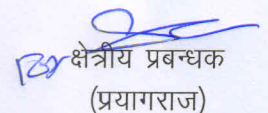 क्षेत्रीय प्रबन्धक
(प्रयागराज)